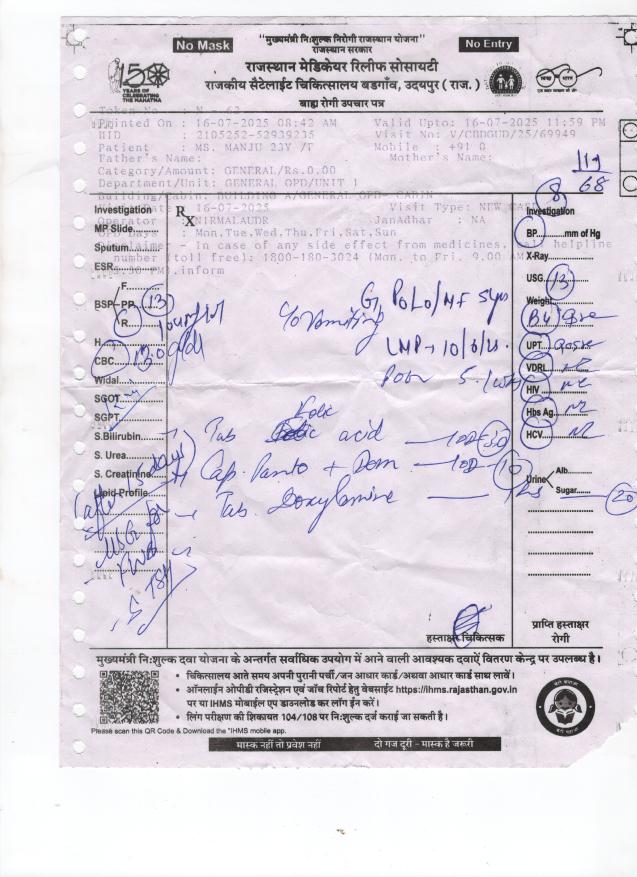 "मुख्यमंत्री नि:शुल्क निरोगी राजस्थान योजना"
No Mask
राजस्थान सरकार
No Entry
राजस्थान मेडिकेयर रिलीफ सोसायटी
राजकीय सैटेलाईट चिकित्सालय बडगाँव, उदयपुर ( राज. )
बाह्य रोगी उपचार पत्र
150
YEARS OF
CELEBRATING
THE MAHATMA
Printed On : 16-07-2025 08:42 AM Valid Upto: 16-07-2025 11:59 PM
HID : 2105252-52939235 Visit No: V/CBDGUD/25/69949
Patient : MS. MANJU 23Y /F Mobile : +91 0
Father's Name: Mother's Name:
Category/Amount: GENERAL/Rs.0.00
Department/Unit: GENERAL OPD/UNIT 1
Building/Cabin: BUILDING A/GENERAL OPD CABIN
16-07-2025 Visit Type: NEW
Operator : NIRMALAUDR JanAadhar : NA
OPD Days : Mon,Tue,Wed,Thu,Fri,Sat,Sun
Disclaimer - In case of any side effect from medicines, call helpline
number (toll free): 1800-180-3024 (Mon. to Fri. 9.00 AM
inform
119
68
Investigation
MP Slide
Sputum
ESR
F.
BSP PP
R
H
CBC
Widal
SGOT
SGPT
S.Bilirubin
S. Urea
S. Creatinine
Lipid Profile
13
Rx
G1 P0L0
c/o Vomiting
LMP → 10/6/25
Tab Folic acid — 10D 30
Cap. Panto + Dom — 10D 10
Tab. Doxylamine — HS 20
USG for
FWB
S. TSH
8
Investigation
BP mm of Hg
X-Ray
USG 13
Weight
BG
UPT
VDRL NR
HIV NR
Hbs Ag NR
HCV NR
Urine Alb.
Sugar
हस्ताक्षर चिकित्सक
प्राप्ति हस्ताक्षर
रोगी
मुख्यमंत्री नि:शुल्क दवा योजना के अन्तर्गत सर्वाधिक उपयोग में आने वाली आवश्यक दवाऐं वितरण केन्द्र पर उपलब्ध है।
• चिकित्सालय आते समय अपनी पुरानी पर्ची/जन आधार कार्ड/अथवा आधार कार्ड साथ लावें।
• ऑनलाईन ओपीडी रजिस्ट्रेशन एवं जाँच रिपोर्ट हेतु वेबसाईट https://ihms.rajasthan.gov.in
पर या IHMS मोबाईल एप डाउनलोड कर लॉग ईन करें।
• लिंग परीक्षण की शिकायत 104/108 पर नि:शुल्क दर्ज कराई जा सकती है।
Please scan this QR Code & Download the "IHMS mobile app.
मास्क नहीं तो प्रवेश नहीं दो गज दूरी - मास्क है जरूरी